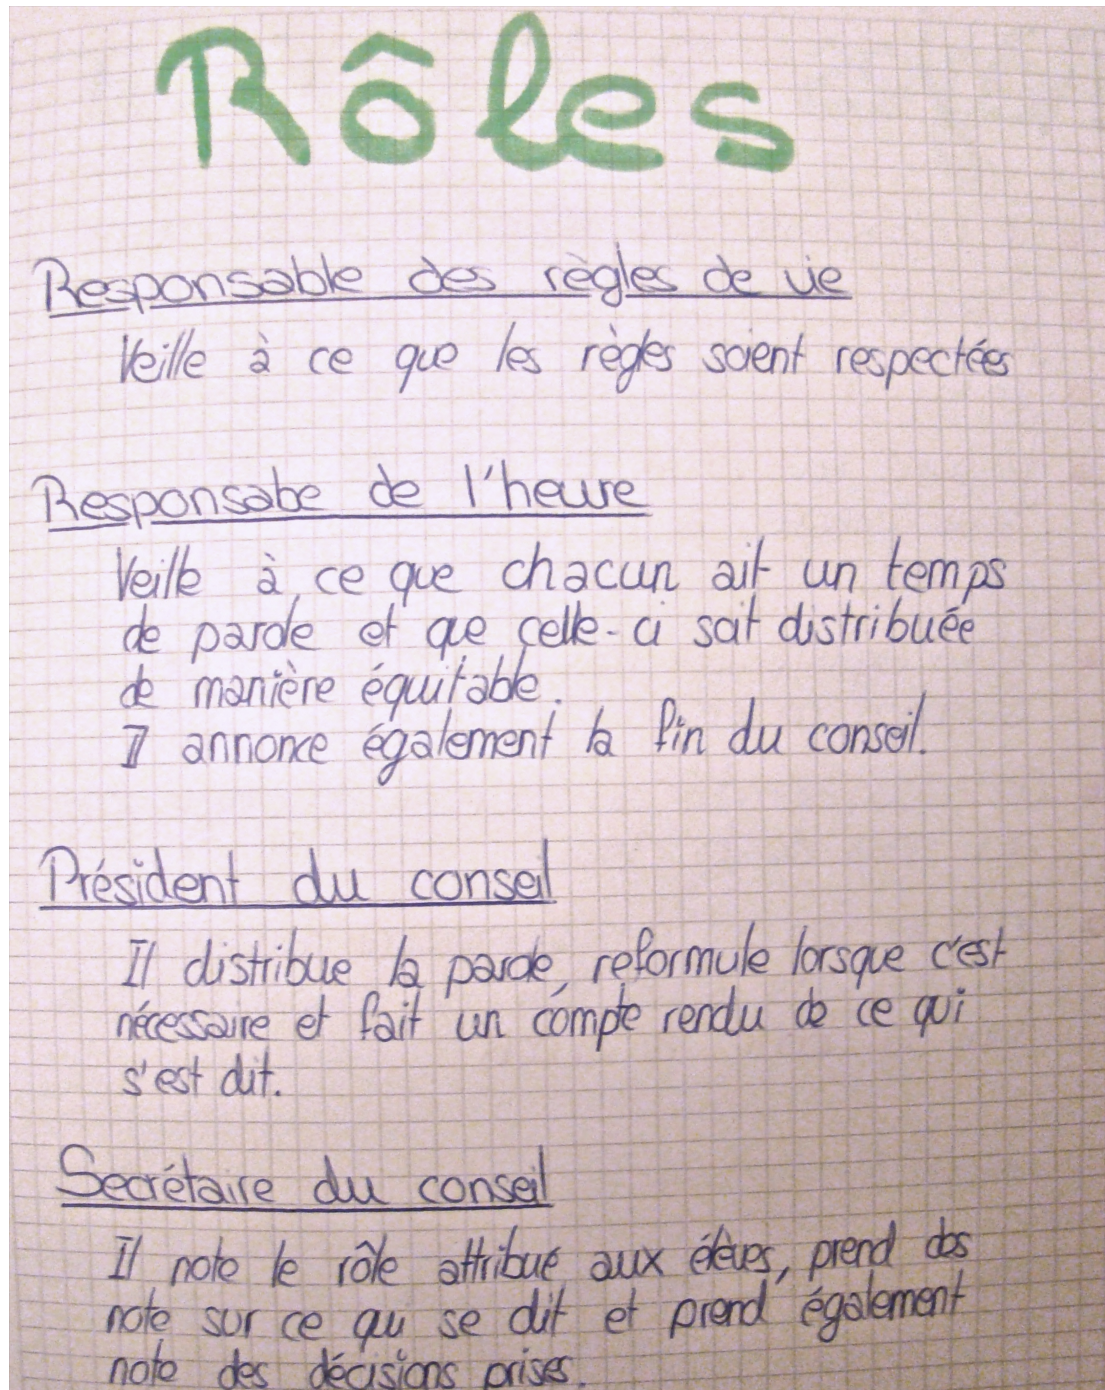 Rôles
Responsable des règles de vie
Veille à ce que les règles soient respectées
Responsabe de l'heure
Veille à ce que chacun ait un temps
de parole et que celle-ci soit distribuée
de manière équitable.
Il annonce également la fin du conseil.
Président du conseil
Il distribue la parole, reformule lorsque c'est
nécessaire et fait un compte rendu de ce qui
s'est dit.
Secrétaire du conseil
Il note le rôle attribué aux élèves, prend des
note sur ce qui se dit et prend également
note des décisions prises.